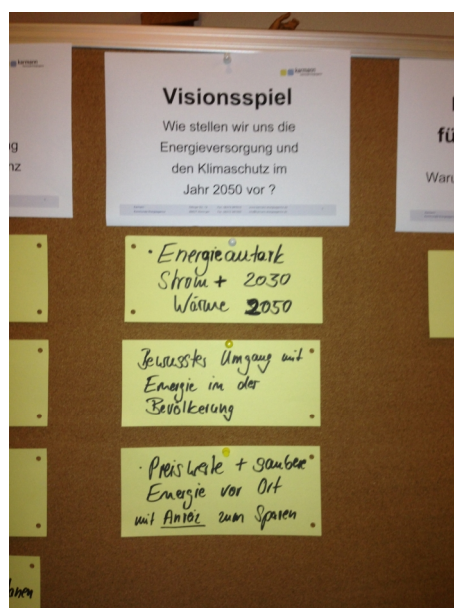 Visionsspiel
Wie stellen wir uns die
Energieversorgung und
den Klimaschutz im
Jahr 2050 vor ?
· Energieautark
Strom + 2030
Wärme 2050
Bewusstes Umgang mit
Energie in der
Bevölkerung
· Preiswerte + saubere
Energie vor Ort
mit Anriz zum Sparen
ng
nz
fü
Waru